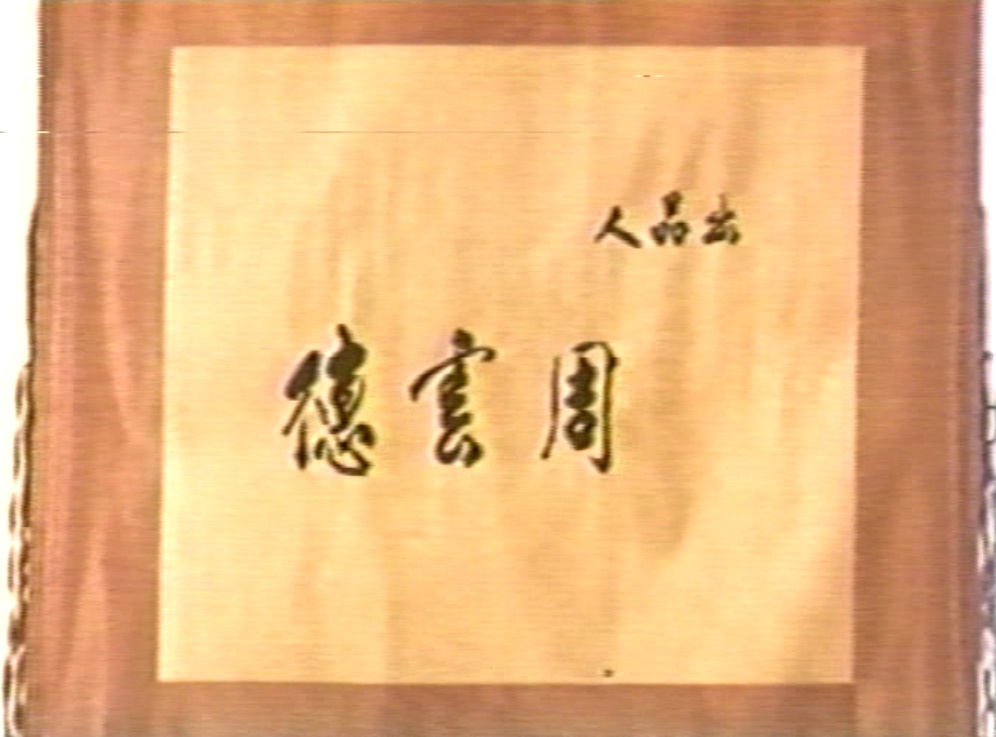 出品人
周雲德